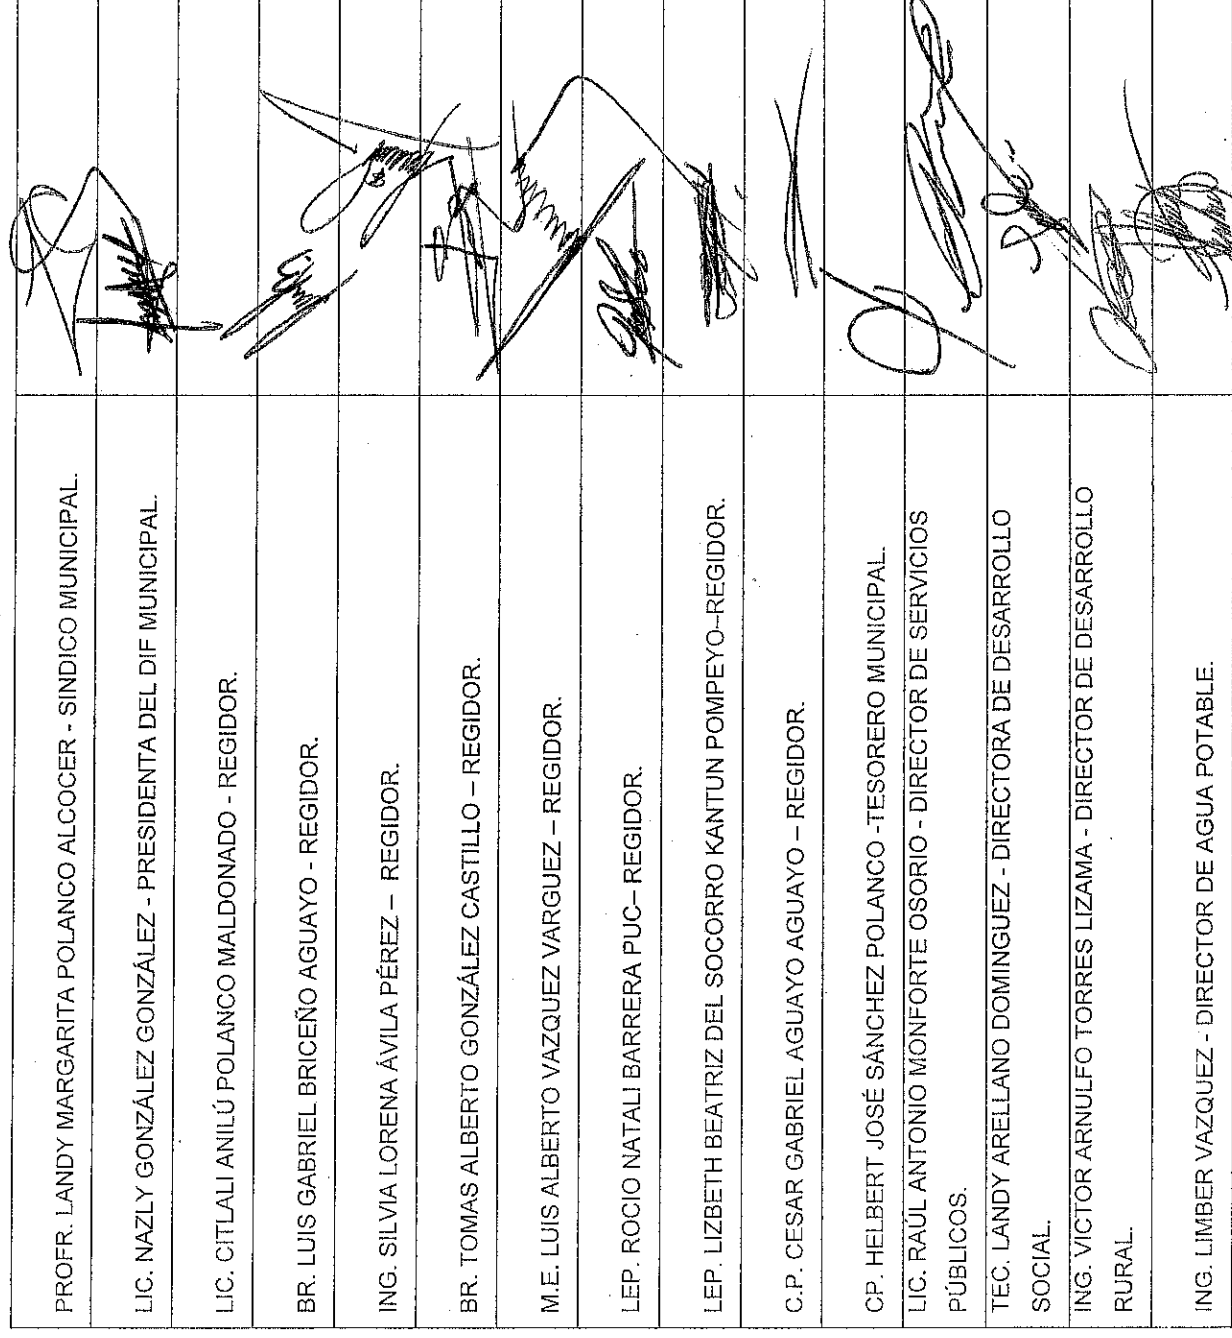 PROFR. LANDY MARGARITA POLANCO ALCOCER - SINDICO MUNICIPAL.
LIC. NAZLY GONZÁLEZ GONZÁLEZ - PRESIDENTA DEL DIF MUNICIPAL.
LIC. CITLALI ANILÚ POLANCO MALDONADO - REGIDOR.
BR. LUIS GABRIEL BRICEÑO AGUAYO - REGIDOR.
ING. SILVIA LORENA ÁVILA PÉREZ – REGIDOR.
BR. TOMAS ALBERTO GONZÁLEZ CASTILLO – REGIDOR.
M.E. LUIS ALBERTO VAZQUEZ VARGUEZ – REGIDOR.
LEP. ROCIO NATALI BARRERA PUC– REGIDOR.
LEP. LIZBETH BEATRIZ DEL SOCORRO KANTUN POMPEYO–REGIDOR.
C.P. CESAR GABRIEL AGUAYO AGUAYO – REGIDOR.
CP. HELBERT JOSÉ SÁNCHEZ POLANCO -TESORERO MUNICIPAL.
LIC. RAÚL ANTONIO MONFORTE OSORIO - DIRECTOR DE SERVICIOS
PÚBLICOS.
TEC. LANDY ARELLANO DOMINGUEZ - DIRECTORA DE DESARROLLO
SOCIAL.
ING. VICTOR ARNULFO TORRES LIZAMA - DIRECTOR DE DESARROLLO
RURAL.
ING. LIMBER VAZQUEZ - DIRECTOR DE AGUA POTABLE.